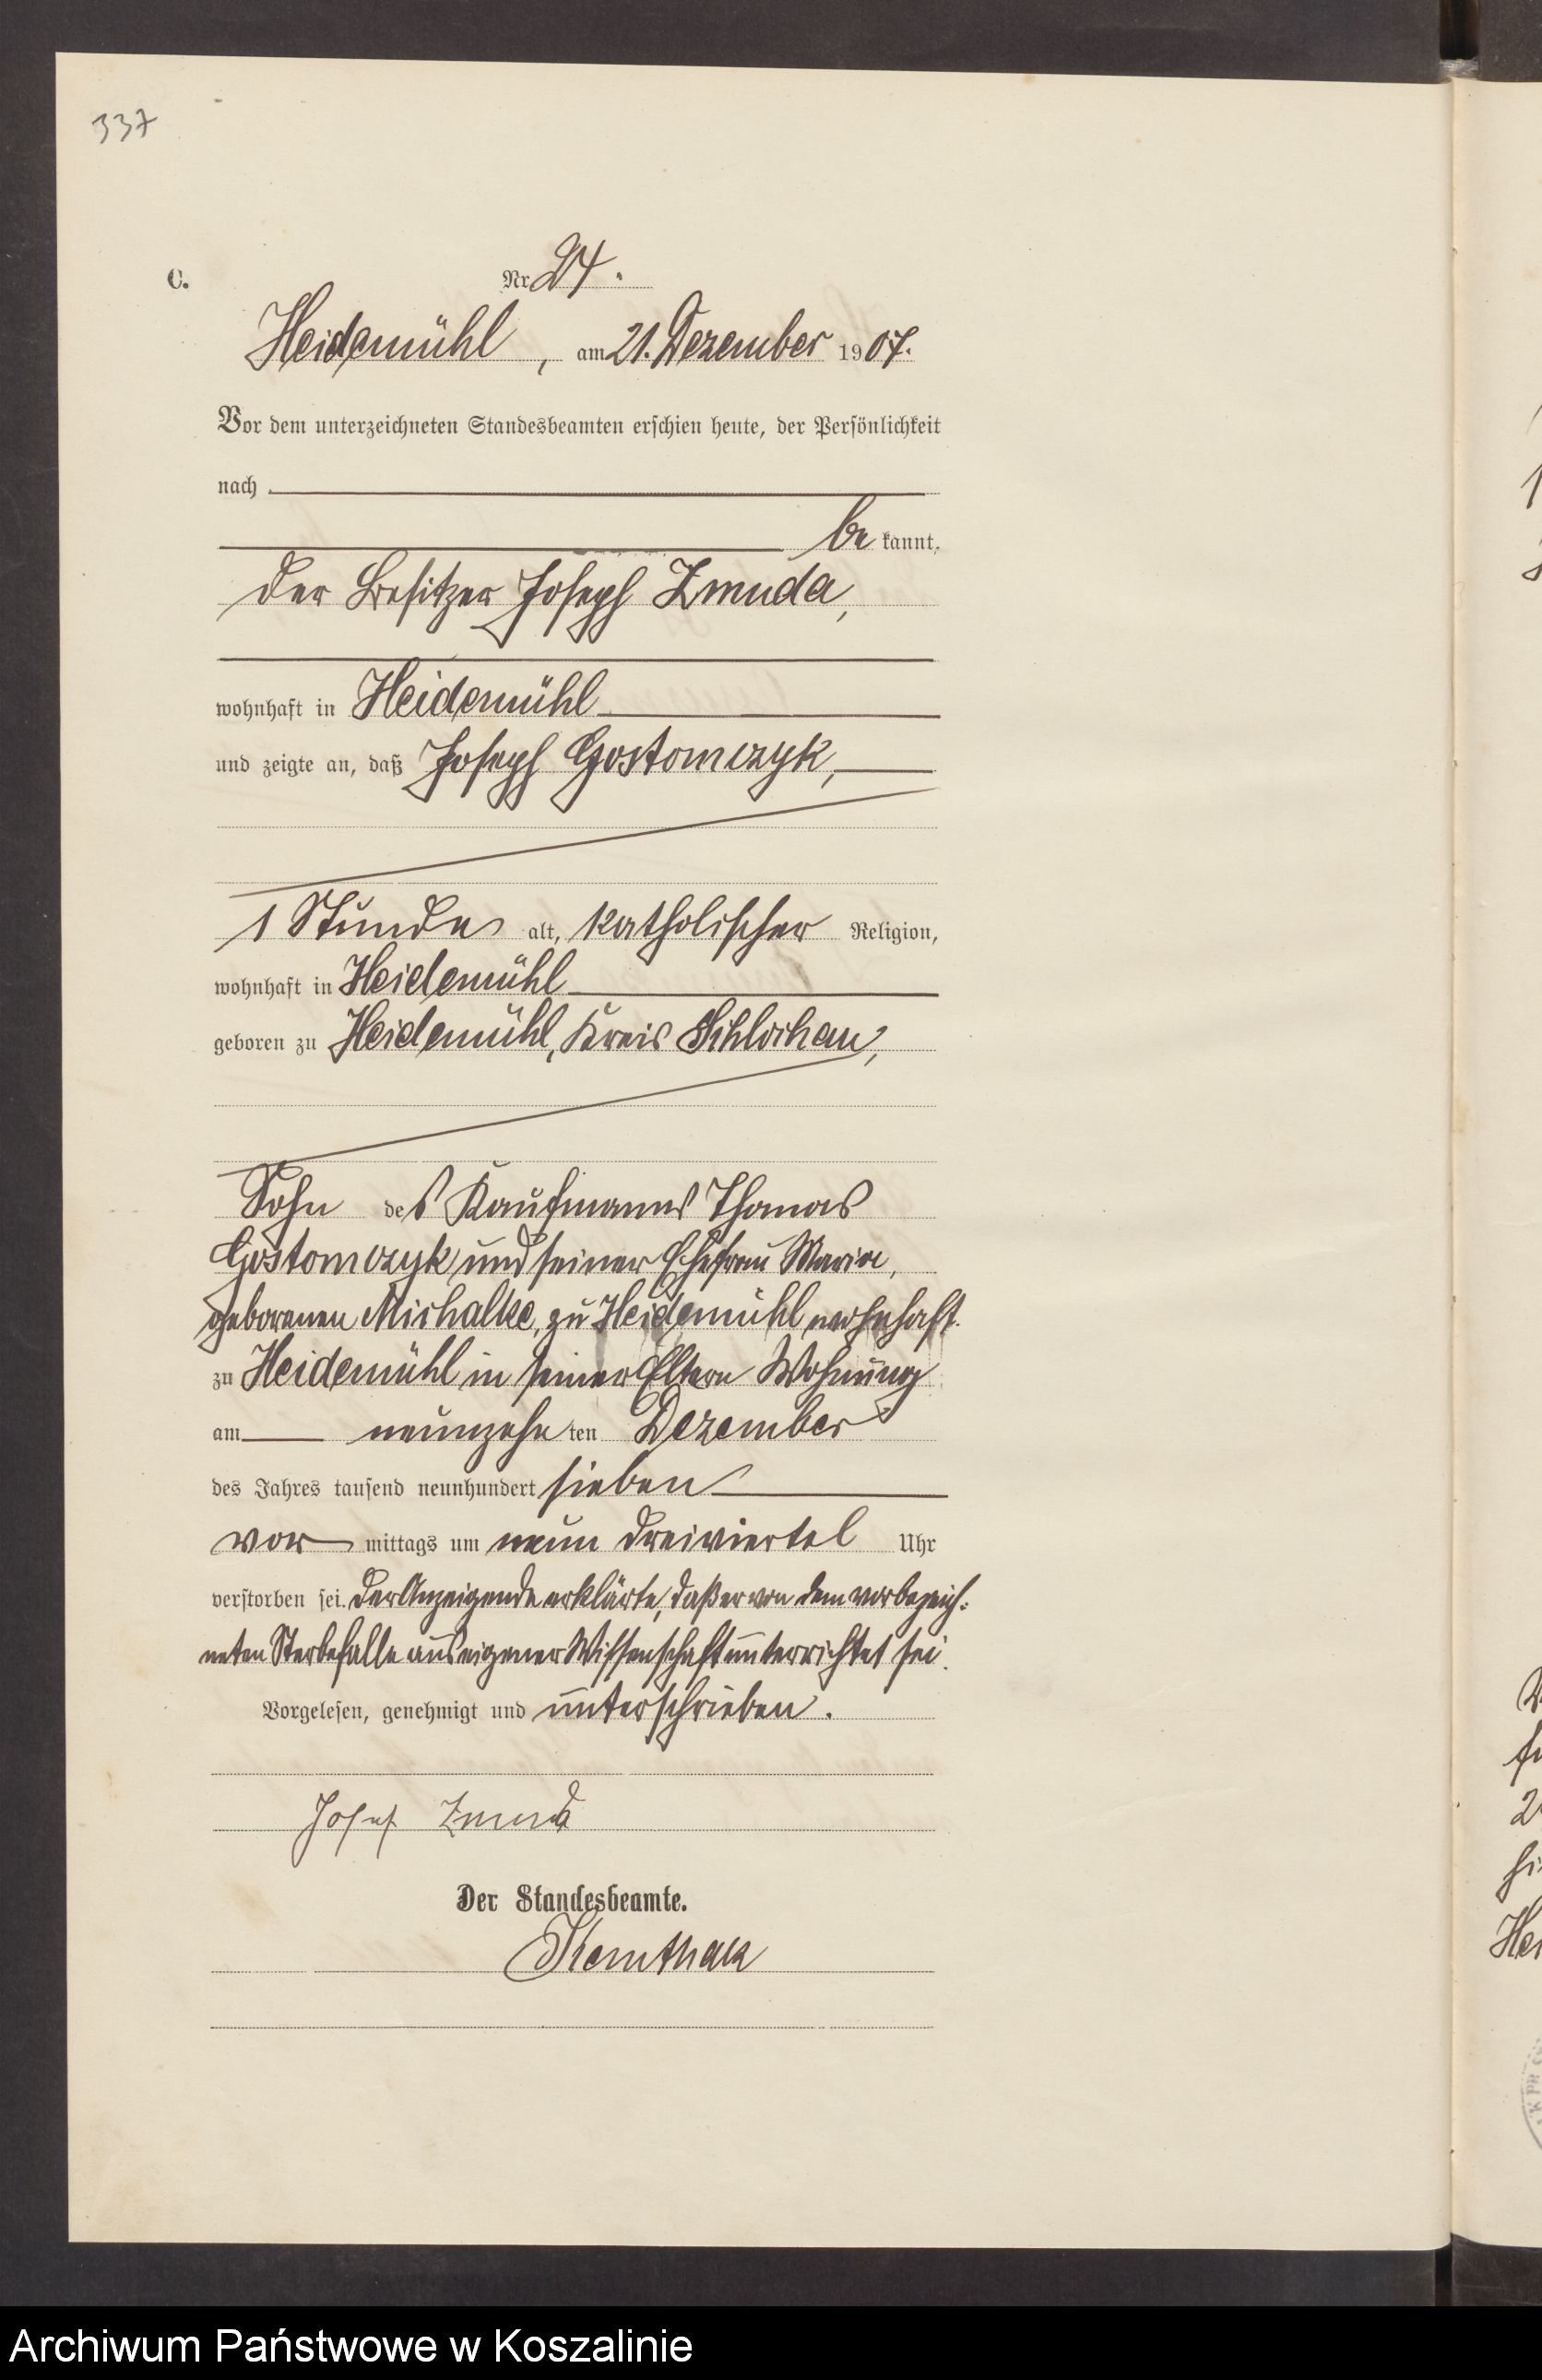 337
C.
Nr. 24.
Heidemühl, am 21. Dezember 1907.
Vor dem unterzeichneten Standesbeamten erschien heute, der Persönlichkeit
nach
be kannt,
der Besitzer Joseph Zmuda,
wohnhaft in Heidemühl
und zeigte an, daß Joseph Gostomczyk,
1 Stunde alt, katholischer Religion,
wohnhaft in Heidemühl
geboren zu Heidemühl, Kreis Schlochau,
Sohn des Kaufmanns Thomas
Gostomczyk und seiner Ehefrau Maria,
geborenen Michalke, zu Heidemühl wohnhaft.
zu Heidemühl in seiner Eltern Wohnung
am neunzehn ten Dezember
des Jahres tausend neunhundert sieben
vor mittags um neun dreiviertel Uhr
verstorben sei. Der Anzeigende erklärte, daß er von dem vorbezeich-
neten Sterbefalle aus eigener Wissenschaft unterrichtet sei.
Vorgelesen, genehmigt und unterschrieben.
Josef Zmuda
Der Standesbeamte.
Archiwum Państwowe w Koszalinie